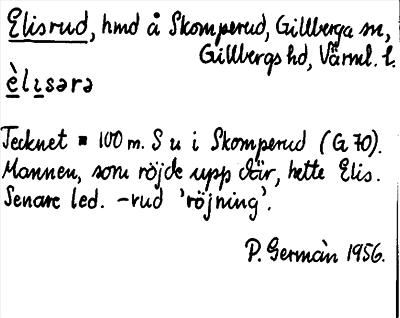 Elisrud, hmd å Skomperud, Gillberga sn,
Gillbergs hd, Värml. l.
èlɪsərə
Tecknet ▪ 100 m. S u i Skomperud (G 70).
Mannen, som röjde upp där, hette Elis.
Senare led. -rud 'röjning'.
P. Germàn 1956.